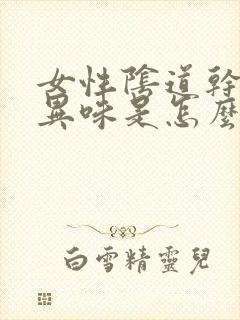 女性陰道幹
異味是怎麼
白雪精靈兒